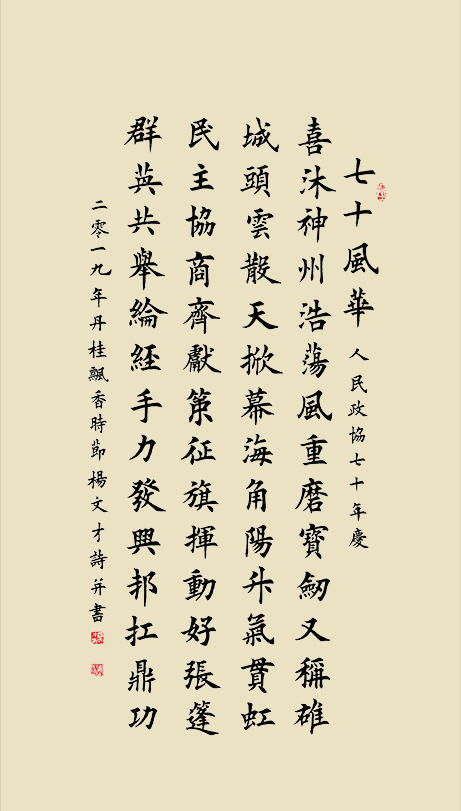 七十風華 人民政協七十年慶
喜沐神州浩蕩風重磨寶劒又稱雄
城頭雲散天掀幕海角陽升氣貫虹
民主協商齊獻策征旗揮動好張篷
群英共舉綸經手力發興邦扛鼎功
二零一九年丹桂飄香時節楊文才詩并書